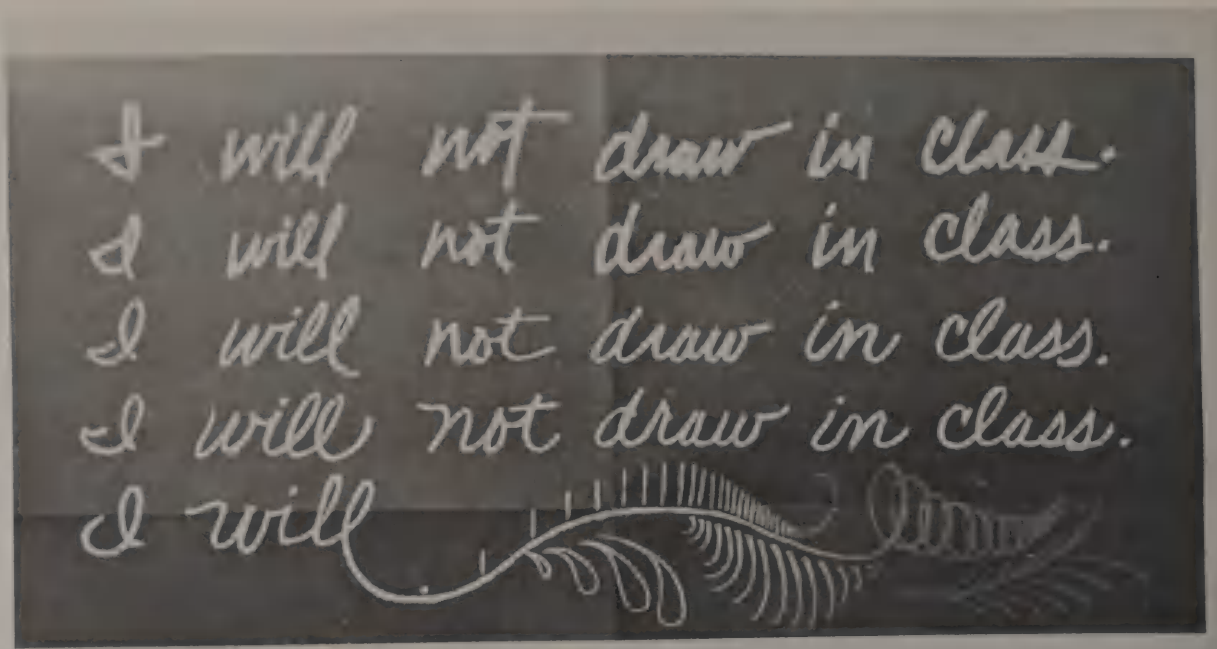 I will not draw in class.
I will not draw in class.
I will not draw in class.
I will not draw in class.
I will